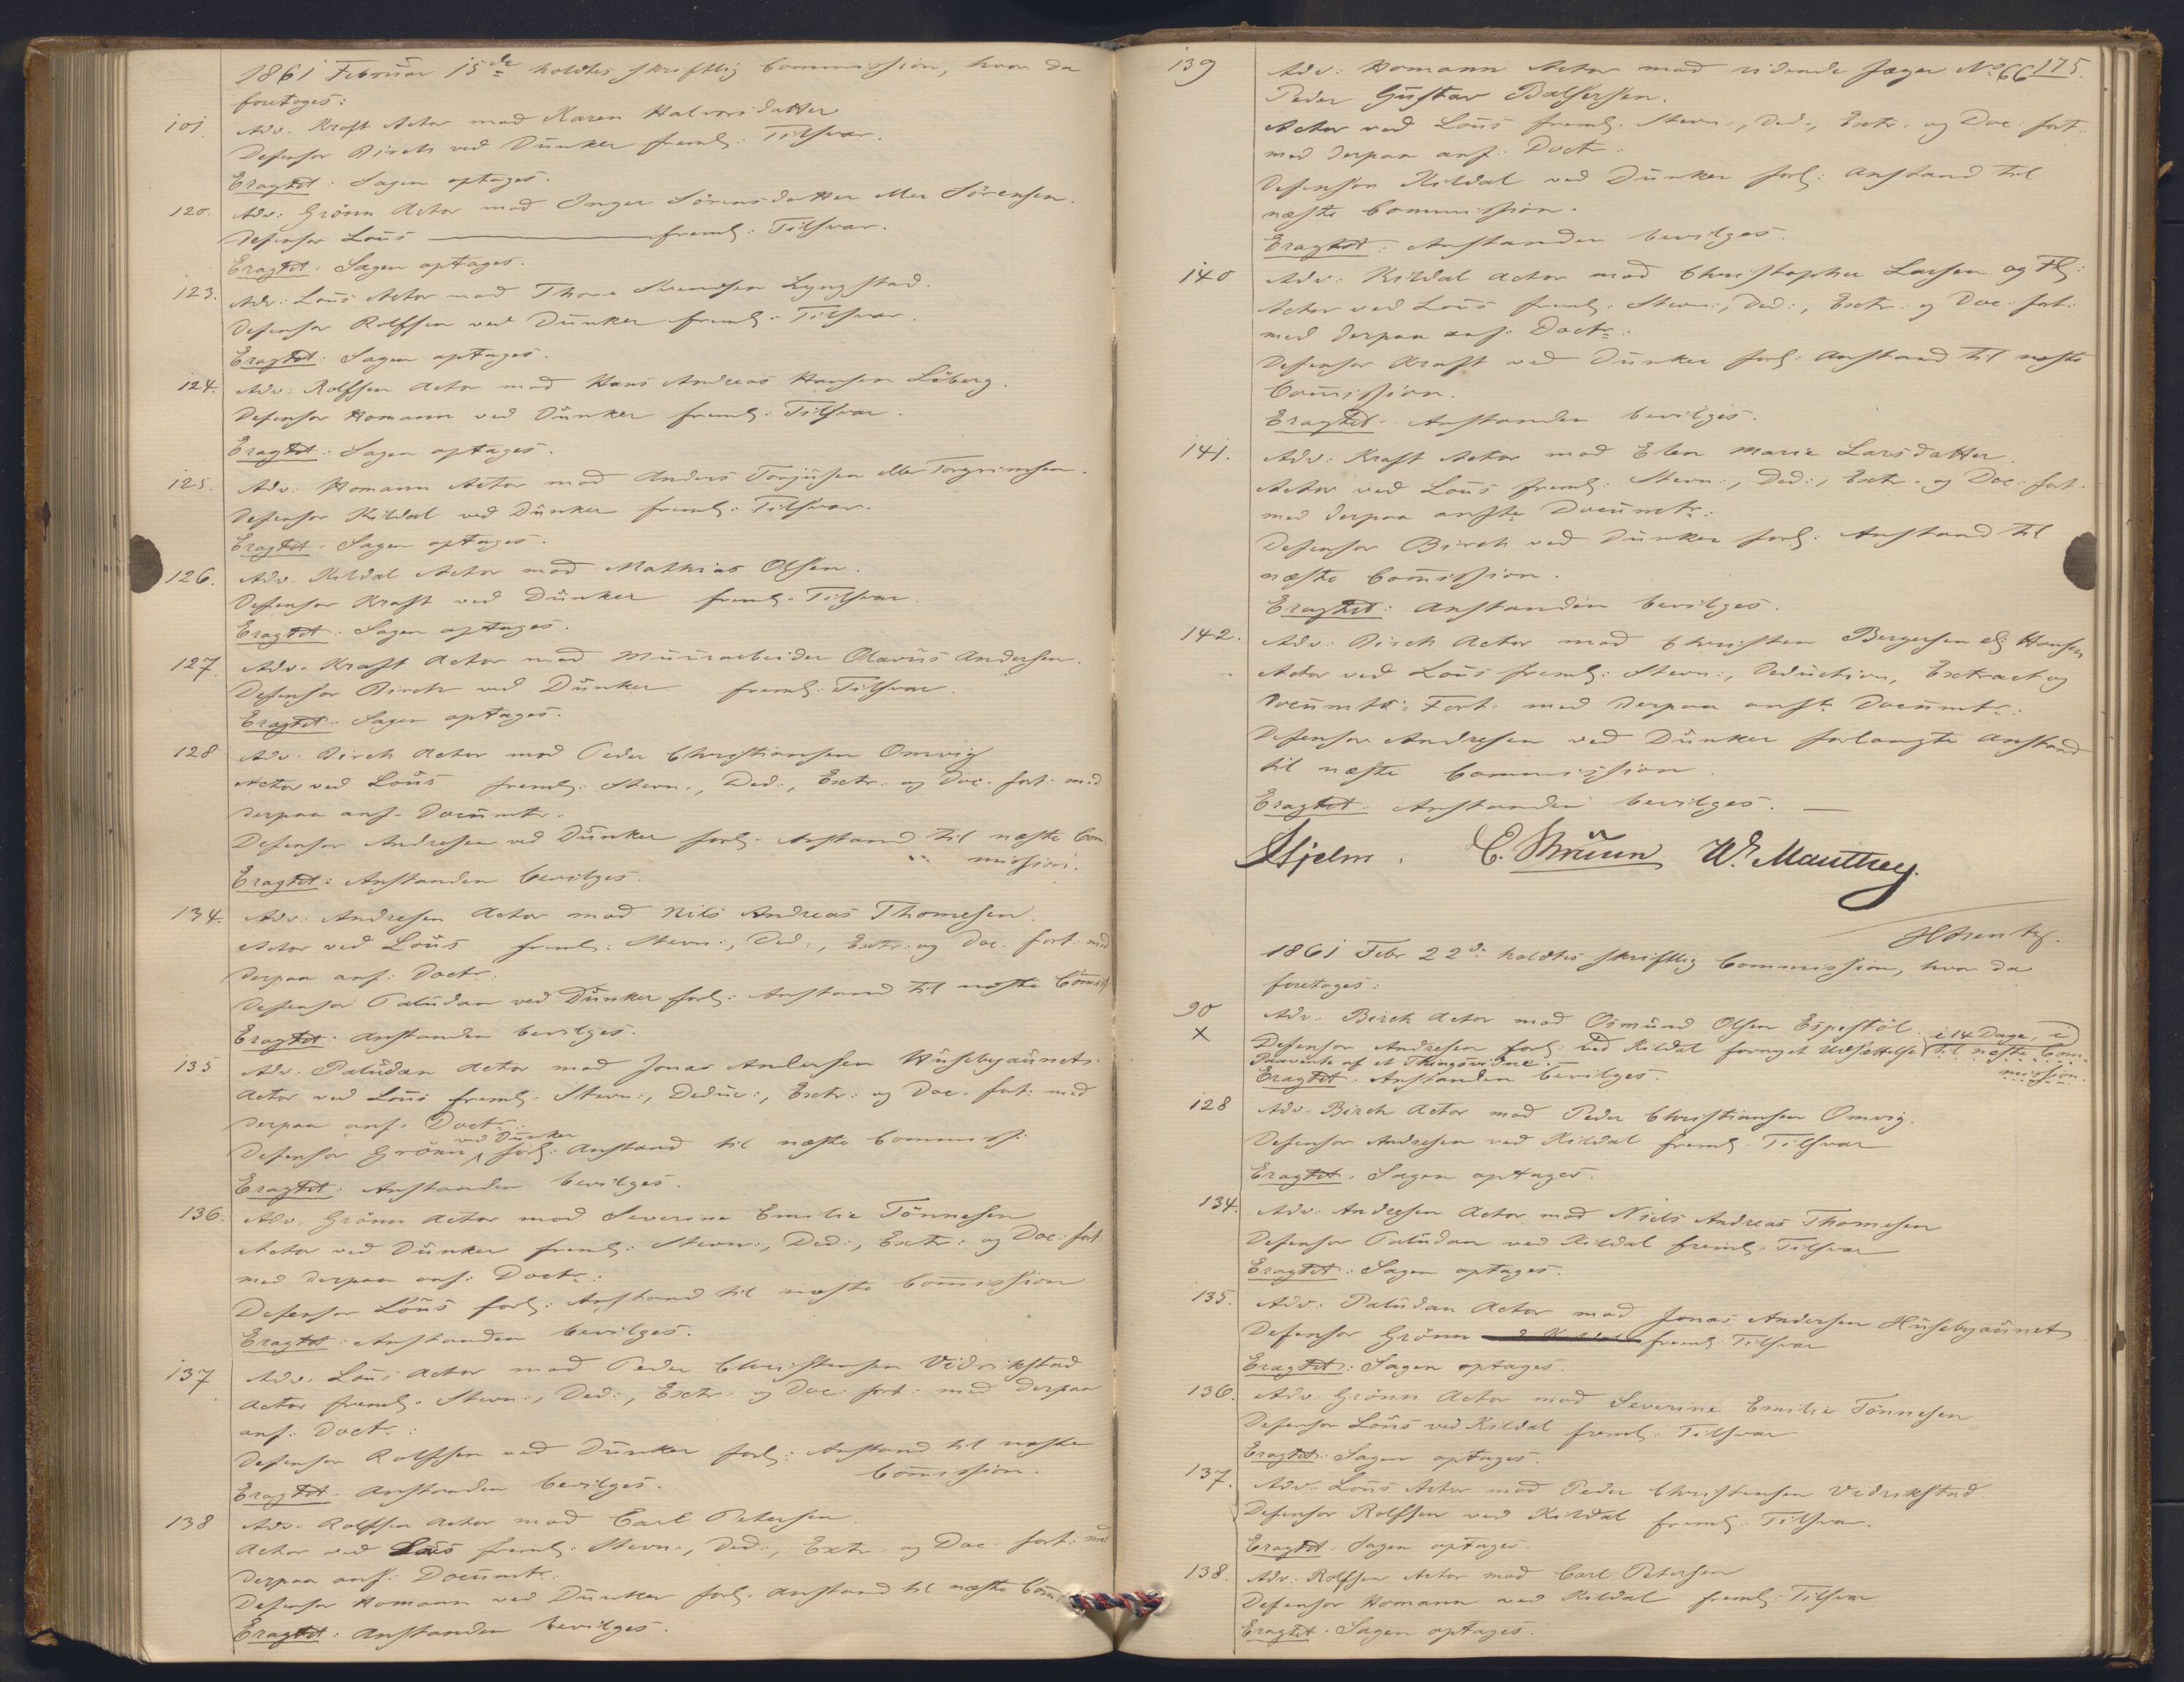 1861 Februar 15de holdtes skriftlig Commission, hvor da
foretoges:
101. Adv. Kraft Actor mod Karen Halvorsdatter
Defensor Birch ved Dunker freml: Tilsvar.
Eragtet: Sagen optages.
120. Adv: Grönn Actor mod Inger Sörensdatter eller Sörensen.
Defensor Lous ——— freml: Tilsvar.
Eragtet: Sagen optages.
123. Adv: Lous Actor mod Thore Lyngstad.
Defensor Rolfsen ved Dunker freml: Tilsvar.
Eragtet: Sagen optages.
124. Adv: Rolfsen Actor mod Hans Andreas Hansen Löberg.
Defensor Homann ved Dunker freml: Tilsvar.
Eragtet: Sagen optages.
125. Adv: Homann Actor mod Anders Torjusen eller Torgrimsen.
Defensor Kildal ved Dunker freml: Tilsvar.
Eragtet: Sagen optages.
126. Adv. Kildal Actor mod Mathias Olsen.
Defensor Kraft ved Dunker freml: Tilsvar.
Eragtet: Sagen optages.
127. Adv. Kraft Actor mod Muurarbeider Olavus Andersen.
Defensor Birch ved Dunker freml: Tilsvar.
Eragtet: Sagen optages.
128 Adv: Birch Actor mod Peder Christiansen Omvig
Actor ved Lous freml: Stevn:, Ded:, Extr: og Doc: fort: med
derpaa anf: Documtr.
Defensor Andresen ved Dunker forl: Anstand til næste Com
mission.
Eragtet: Anstanden bevilges.
134. Adv: Andresen Actor mod Nils Andreas Thomesen.
Actor ved Lous freml: Stevn:, Ded:, Extr: og Doc: fort: med
derpaa anf: Doctr:
Defensor Paludan ved Dunker forl: Anstand til næste Commis:
Eragtet: Anstanden bevilges.
135 Adv: Paludan Actor mod Jonas Andersen Husebyaunet.
Actor ved Lous freml: Stevn:, Deduc:, Extr: og Doc: fort: med
derpaa anf: Doctr:
ved Dunker
Defensor Grönn forl: Anstand til næste Commiss:
Eragtet: Anstanden bevilges.
136. Adv. Grönn Actor mod Severine Emilie Tönnesen
Actor ved Dunker freml: Stevn:, Ded:, Extr: og Doc: fort
med derpaa anf: Doctr:
Defensor Lous forl: Anstand til næste Commission
Eragtet: Anstanden bevilges.
137 Adv: Lous Actor mod Peder Christensen Vidrikstad
Actor freml: Stevn:, Ded:, Extr: og Doc: fort: med derpaa
anf: Doctr:
Defensor Rolfsen ved Dunker forl: Anstand til næste
Commission.
Eragtet: Anstanden bevilges.
138 Adv. Rolfsen Actor mod Carl Petersen.
Actor ved Lous freml: Stevn:, Ded:, Extr: og Doc: fort: med
derpaa anf: Documtr:
Defensor Homann ved Dunker forl: Anstand til næste Com:
Eragtet: Anstanden bevilges.
175.
139 Adv: Homann Actor mod ridende Jæger No 66
Peder Gustav Balsersen.
Actor ved Lous freml: Stevn:, Ded:, Extr: og Doc: fort
med derpaa anf: Doctr:
Defensor Kildal ved Dunker forl: Anstand til
næste Commission.
Eragtet: Anstanden bevilges.
140 Adv: Kildal Actor mod Christopher Larsen og Fl:
Actor ved Lous freml: Stevn:, Ded:, Extr: og Doc: fort:
med derpaa anf: Doctr:
Defensor Kraft ved Dunker forl: Anstand til næste
Commission.
Eragtet: Anstanden bevilges.
141. Adv: Kraft Actor mod Elen Marie Larsdatter
Actor ved Lous freml: Stevn:, Ded:, Extr: og Doc: fort:
med derpaa anfte Documtr:
Defensor Birch ved Dunker forl: Anstand til
næste Commission.
Eragtet: Anstanden bevilges.
142. Adv: Birch Actor mod Christen Bergersen ell: Hansen
Actor ved Lous freml: Stevn:, Deduction, Extract og
Documts: Fort. med derpaa anfte Documtr:
Defensor Andresen ved Dunker forlangte Anstand
til næste Commission.
Eragtet: Anstanden bevilges. —
Hjelm. C. Bruun W. Manthey
1861 Febr 22de holdtes skriftlig Commission, hvor da
foretoges:
90 Adv: Birch Actor mod Osmund Olsen Espestöl.
× Defensor Andresen forl: ved Kildal fornyet Udsættelse i 14 Dage, i
Paavente af et Thingsvidne. — til næste Com-
mission.
Eragtet: Anstanden bevilges.
128 Adv: Birch Actor mod Peder Christiansen Omvig.
Defensor Andresen ved Kildal freml: Tilsvar
Eragtet: Sagen optages.
134. Adv: Andresen Actor mod Niels Andreas Thomesen
Defensor Paludan ved Kildal freml: Tilsvar
Eragtet: Sagen optages.
135. Adv: Paludan Actor mod Jonas Andersen Husebyaunet
Defensor Grönn freml: Tilsvar
Eragtet: Sagen optages.
136. Adv: Grönn Actor mod Severine Emilie Tönnesen
Defensor Lous ved Kildal freml: Tilsvar
Eragtet: Sagen optages.
137. Adv: Lous Actor mod Peder Christensen Vidrikstad
Defensor Rolfsen ved Kildal freml: Tilsvar.
Eragtet: Sagen optages.
138. Adv: Rolfsen Actor mod Carl Petersen
Defensor Homann ved Kildal freml: Tilsvar
Eragtet: Sagen optages.